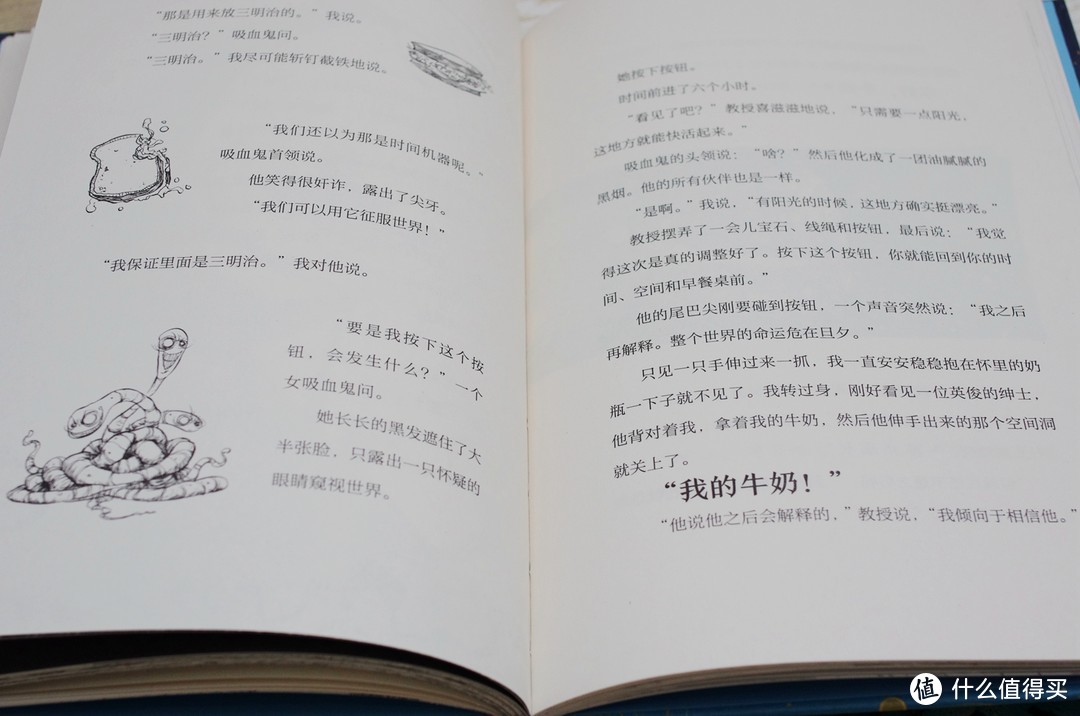 “那是用来放三明治的。”我说。
“三明治？”吸血鬼问。
“三明治。”我尽可能斩钉截铁地说。
“我们还以为那是时间机器呢。”
吸血鬼首领说。
他笑得很奸诈，露出了尖牙。
“我们可以用它征服世界！”
“我保证里面是三明治。”我对他说。
“要是我按下这个按
钮，会发生什么？”一个
女吸血鬼问。
她长长的黑发遮住了大
半张脸，只露出一只怀疑的
眼睛窥视世界。
她按下按钮。
时间前进了六个小时。
“看见了吧？”教授喜滋滋地说，“只需要一点阳光，
这地方就能快活起来。”
吸血鬼的头领说：“啥？”然后他化成了一团油腻腻的
黑烟。他的所有伙伴也是一样。
“是啊。”我说，“有阳光的时候，这地方确实挺漂亮。”
教授摆弄了一会儿宝石、线绳和按钮，最后说：“我觉
得这次是真的调整好了。按下这个按钮，你就能回到你的时
间、空间和早餐桌前。”
他的尾巴尖刚要碰到按钮，一个声音突然说：“我之后
再解释。整个世界的命运危在旦夕。”
只见一只手伸过来一抓，我一直安安稳稳抱在怀里的奶
瓶一下子就不见了。我转过身，刚好看见一位英俊的绅士，
他背对着我，拿着我的牛奶，然后他伸手出来的那个空间洞
就关上了。
“我的牛奶！”
“他说他之后会解释的，”教授说，“我倾向于相信他。”
值 什么值得买